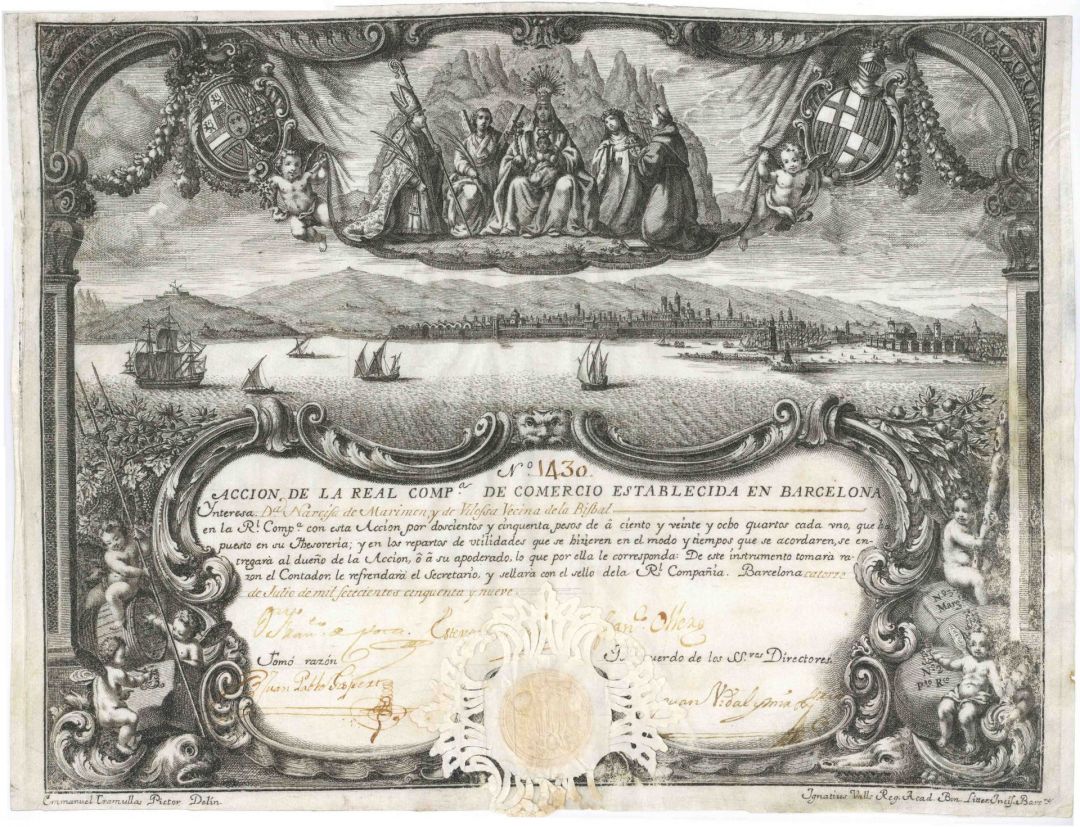 Nº 1430.
ACCION, DE LA REAL COMP.ª DE COMERCIO ESTABLECIDA EN BARCELONA
Interesa D.ª Narcisa de Marimon y de Vilossa Vecina de la Bisbal
en la R.l Comp.ª con esta Accion, por doscientos y cinquenta pesos de â ciento y veinte y ocho quartos cada vno, que ha
puesto en su Thesorería; y en los repartos de vtilidades que se hizieren en el modo y tiempos, que se acordaren, se en-
tregará al dueño de la Accion, ô â su apoderado, lo que por ella le corresponda: De este instrumento tomará ra-
zon el Contador, le refrendará el Secretario, y sellará con el sello dela R.l Compañía. Barcelona catorze
de Julio de mil setecientos cinquenta y nueve.
Tomó razón
Acuerdo de los SS.res Directores
Juan Pablo
Juan Vidal
Nº 3
Marc
Nº
pto Rco
Emmanuel Tramullas Pictor Delin.
Ignatius Valls Reg. Acad. Bon. Litter. Incis. Barc.